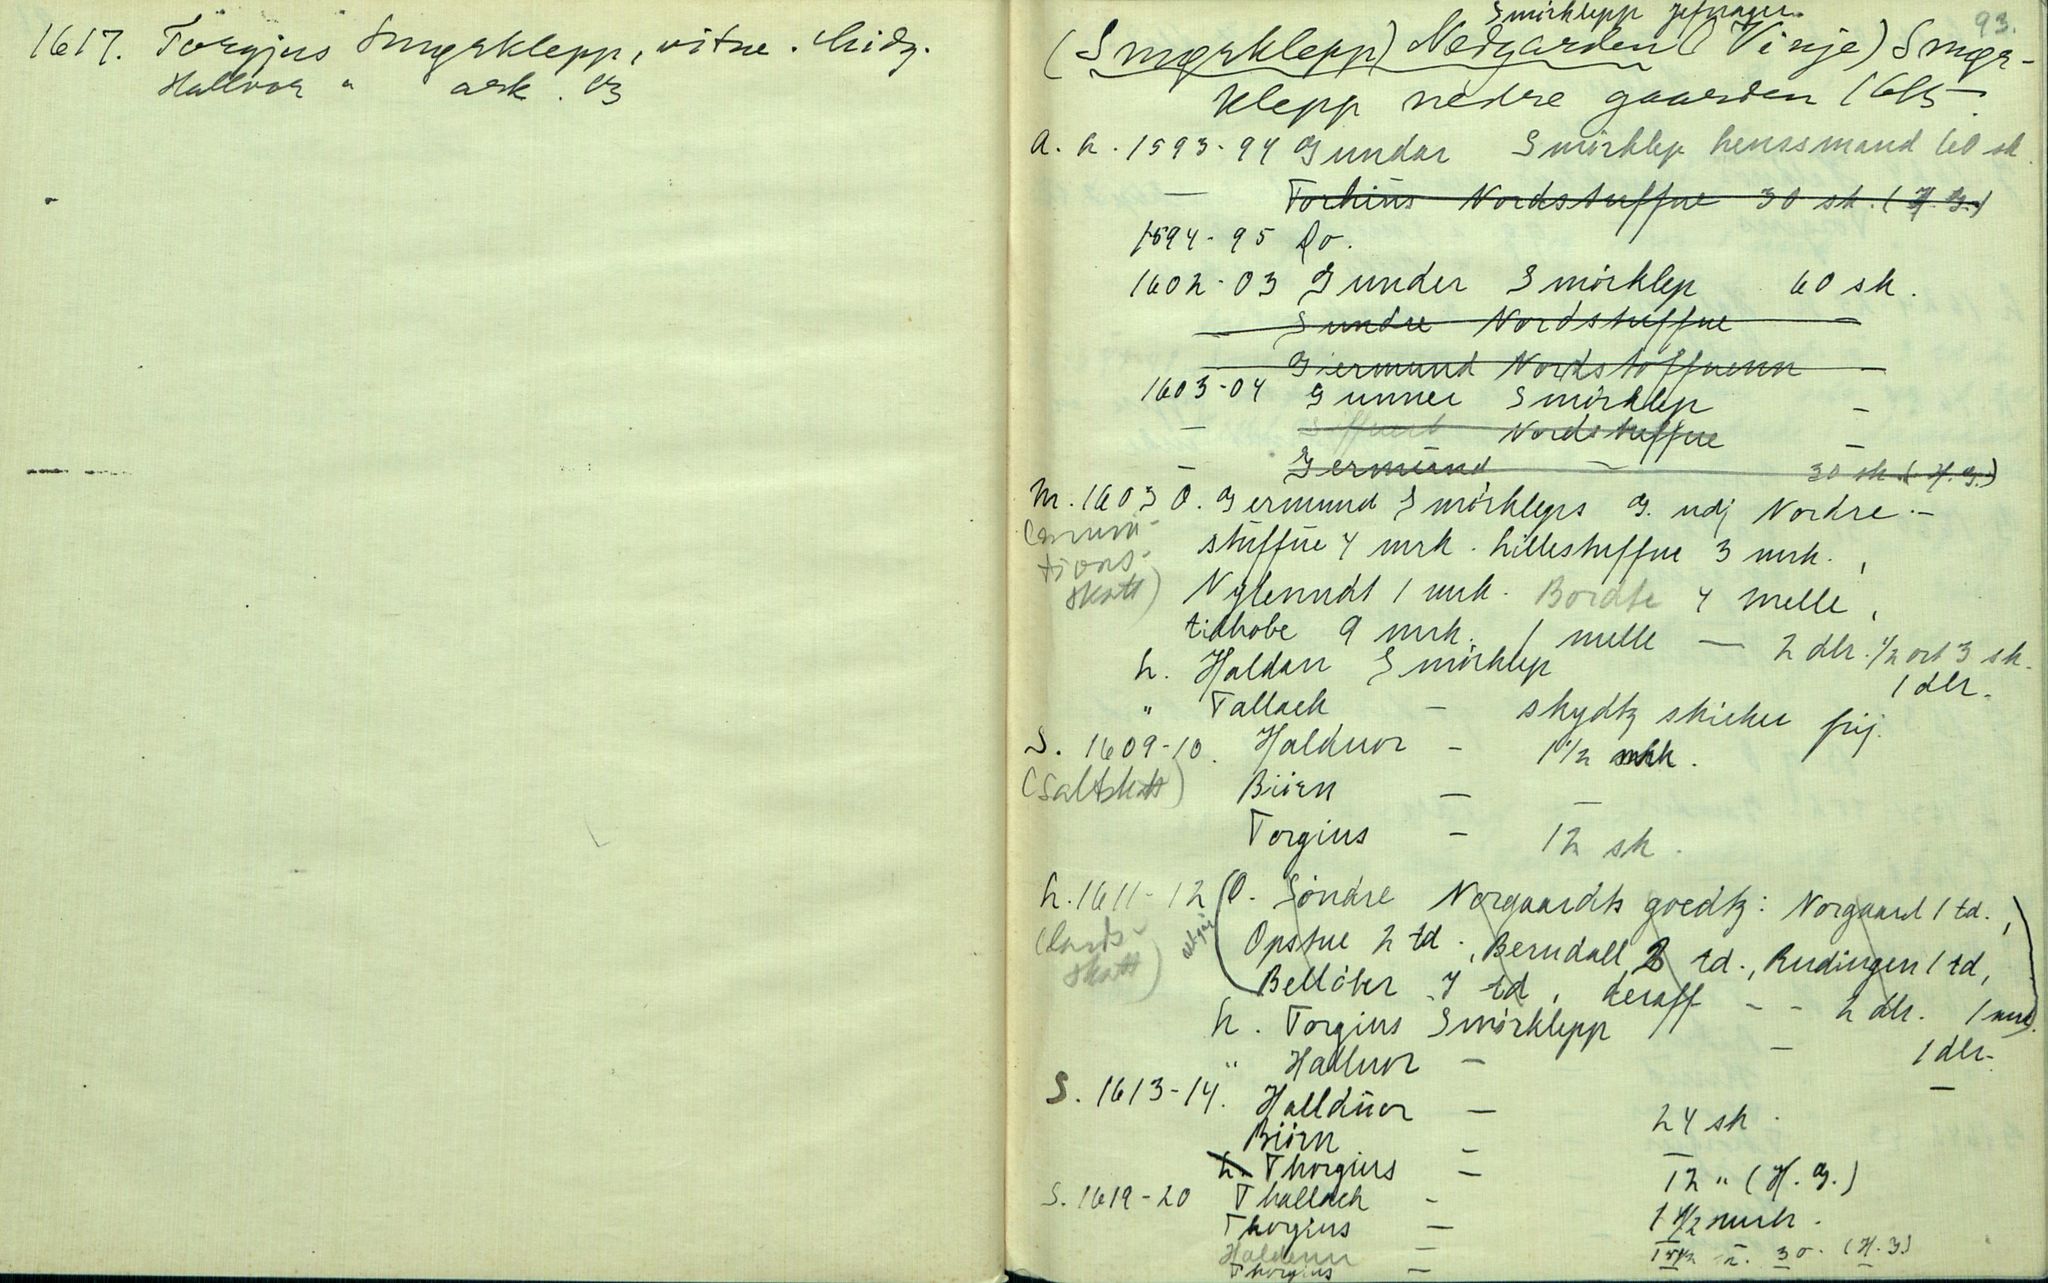 1617. Torgjus Smørklepp, vitne.
Hallvor " 
93.
Smörklepp
(Smørklepp) Nedgarden (Vinje) Smør-
klepp nedre gaarden 1615
A. h. 1593-94 Gundar Smörklep lenssmand 60 sk.
— Torkius Nordstuffue 30 sk. (H.G.)
1594-95 Do.
1602-03 Gunder Smörklep 60 sk.
Sundre Nordstuffue —
Giermund Nordstoffuenn —
1603-04 Gunner Smörklep —
— Nordstuffue —
— Germund — 30 sk. (H.G.)
M. 1603 O. Germund Smörkleps G. udj Nordre-
stuffue 4 mrk. Lillestuffue 3 mrk.,
Nylenndt 1 mrk. 4 melle,
tidhobe 9 mrk. 1 melle — 2 dlr. 1/2 ort 3 sk.
skatt)
L. Haldan Smörklep 1 dlr.
" Tallack — skydtz skicker frij.
S. 1609-10. Halduor — 1 1/2 mrk.
(Saltskatt) Biörn — —
Torgius — 12 sk.
L. 1611-12 (O. Söndre Norgaardts goedtz: Norgaard 1 td.,
(lands-
skatt)
Opstue 2 td., Berndall 2 td., Rudingen 1 td,
Bellöber 7 td, deraff - - 2 dlr. 1 mrk)
L. Torgius Smörklepp — 1 dlr.
" Halluor — —
S. 1613-14. Hallduor — 24 sk.
Biörn — —
L. Thorgius — 12 " (H.G.)
S. 1619-20 Thallack — 1 1/2 mrk.
Thorgius — —
Thorgius —